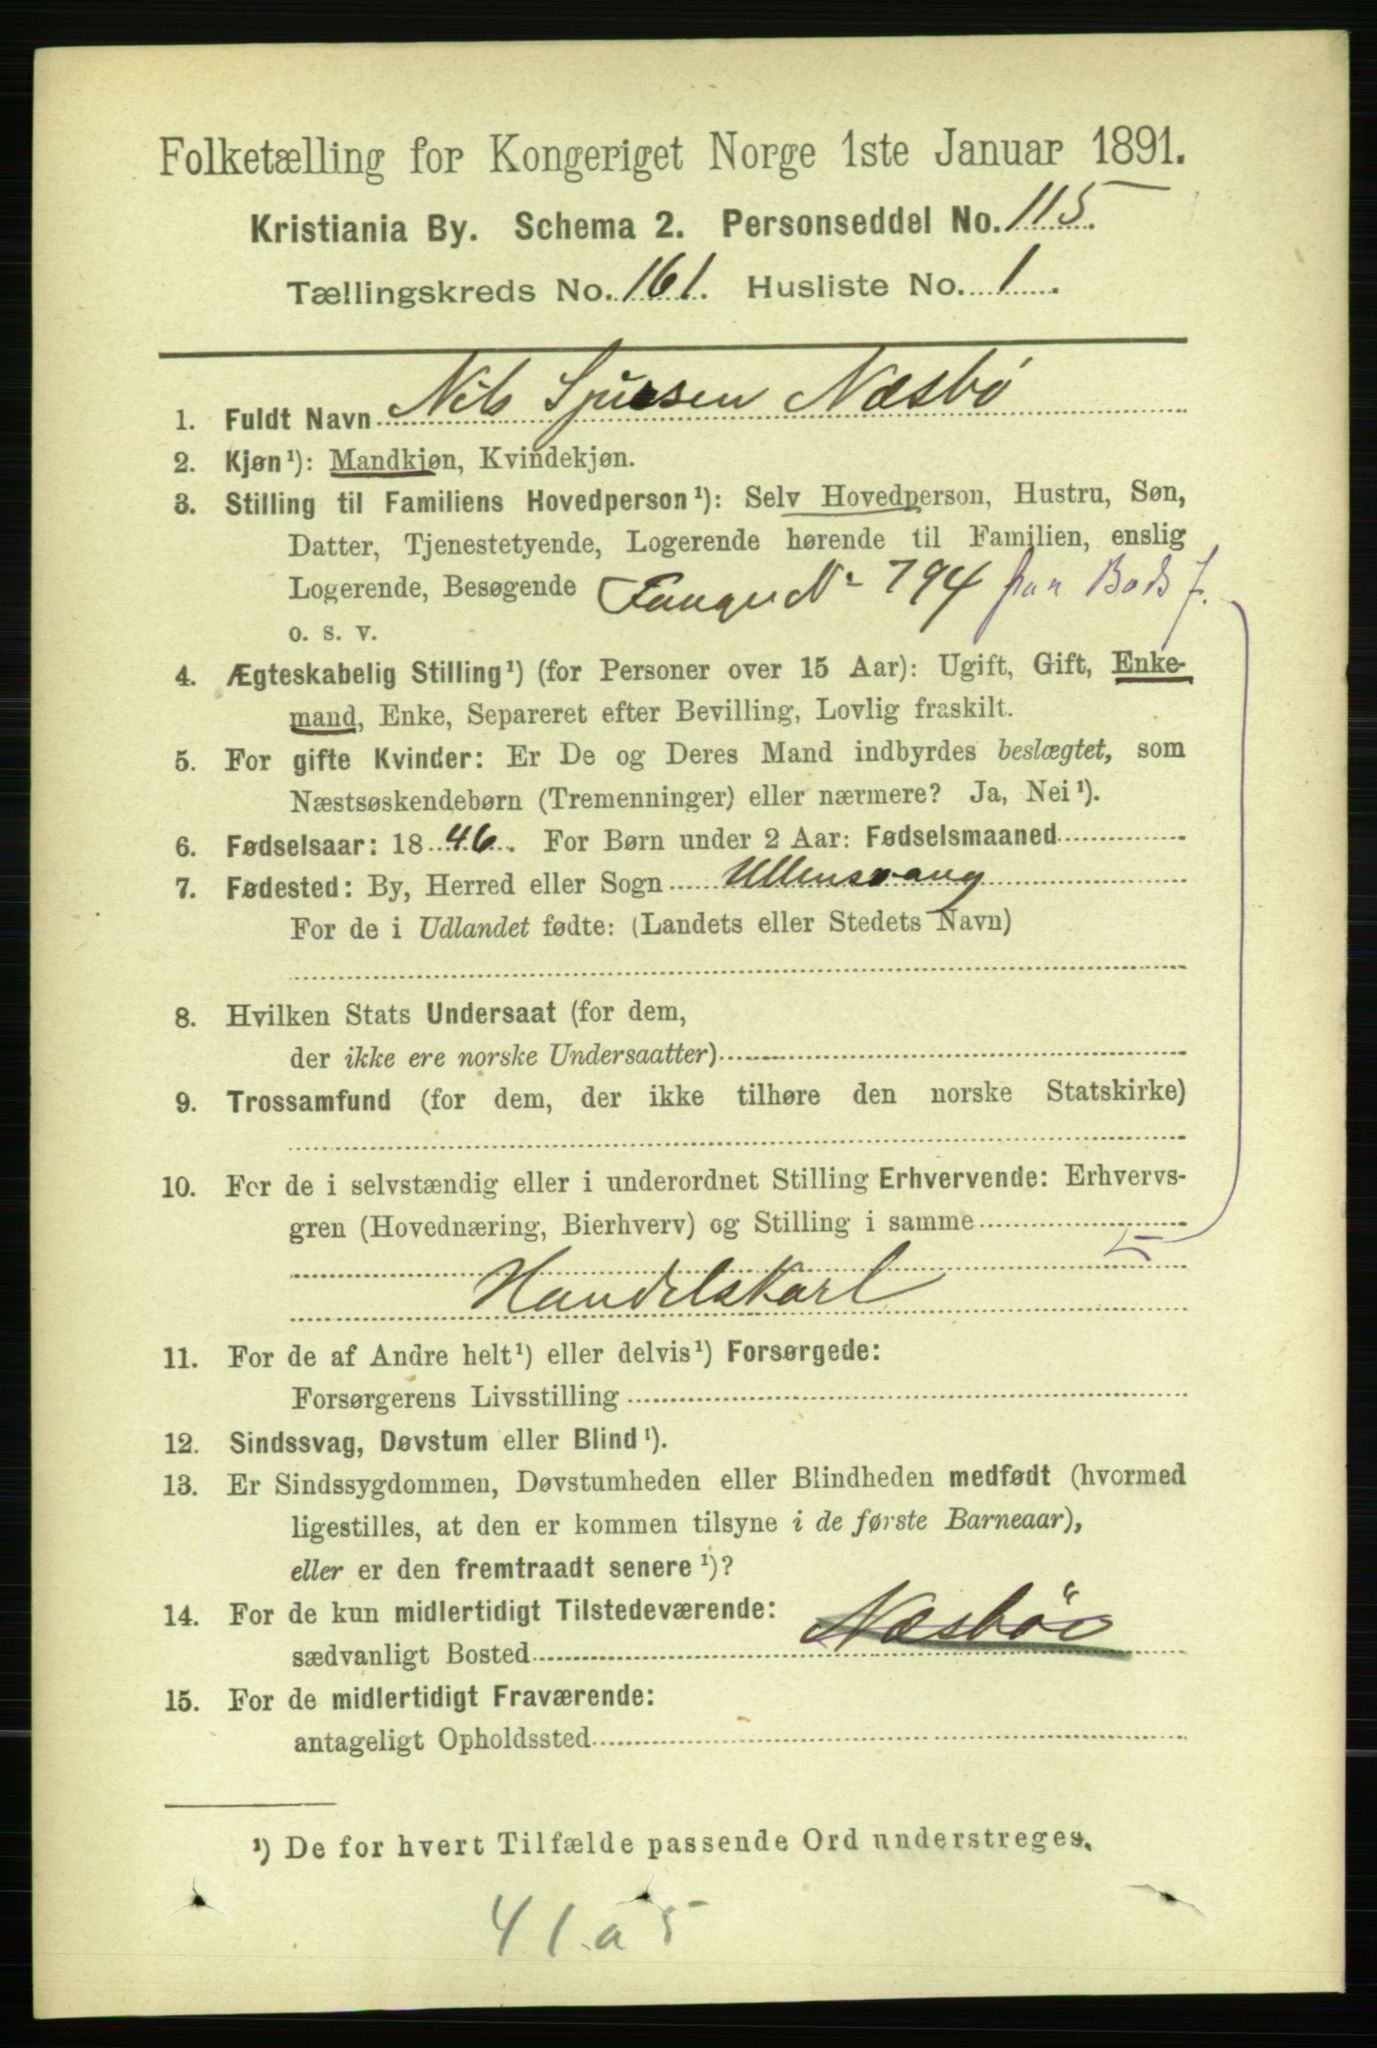 Folketælling for Kongeriget Norge 1ste Januar 1891.
Kristiania By. Schema 2. Personseddel No. 115.
Tællingskreds No. 161. Husliste No. 1.
1. Fuldt Navn Nils Sjursen Næsbø
2. Kjøn¹): Mandkjøn, Kvindekjøn.
3. Stilling til Familiens Hovedperson¹): Selv Hovedperson, Hustru, Søn,
Datter, Tjenestetyende, Logerende hørende til Familien, enslig
Logerende, Besøgende Fange No 794 fra Bodsf.
o. s. v.
4. Ægteskabelig Stilling¹) (for Personer over 15 Aar): Ugift, Gift, Enke-
mand, Enke, Separeret efter Bevilling, Lovlig fraskilt.
5. For gifte Kvinder: Er De og Deres Mand indbyrdes beslægtet, som
Næstsøskendebørn (Tremenninger) eller nærmere? Ja, Nei¹).
6. Fødselsaar: 1846. For Børn under 2 Aar: Fødselsmaaned
7. Fødested: By, Herred eller Sogn Ullensvang
For de i Udlandet fødte: (Landets eller Stedets Navn)
8. Hvilken Stats Undersaat (for dem,
der ikke ere norske Undersaatter)
9. Trossamfund (for dem, der ikke tilhøre den norske Statskirke)
10. For de i selvstændig eller i underordnet Stilling Erhvervende: Erhvervs-
gren (Hovednæring, Bierhverv) og Stilling i samme
Handelskarl
11. For de af Andre helt¹) eller delvis¹) Forsørgede:
Forsørgerens Livsstilling
12. Sindssvag, Døvstum eller Blind¹).
13. Er Sindssygdommen, Døvstumheden eller Blindheden medfødt (hvormed
ligestilles, at den er kommen tilsyne i de første Barneaar),
eller er den fremtraadt senere¹)?
14. For de kun midlertidigt Tilstedeværende:
sædvanligt Bosted Næsbö
15. For de midlertidigt Fraværende:
antageligt Opholdssted
¹) De for hvert Tilfælde passende Ord understreges.
41 a 5